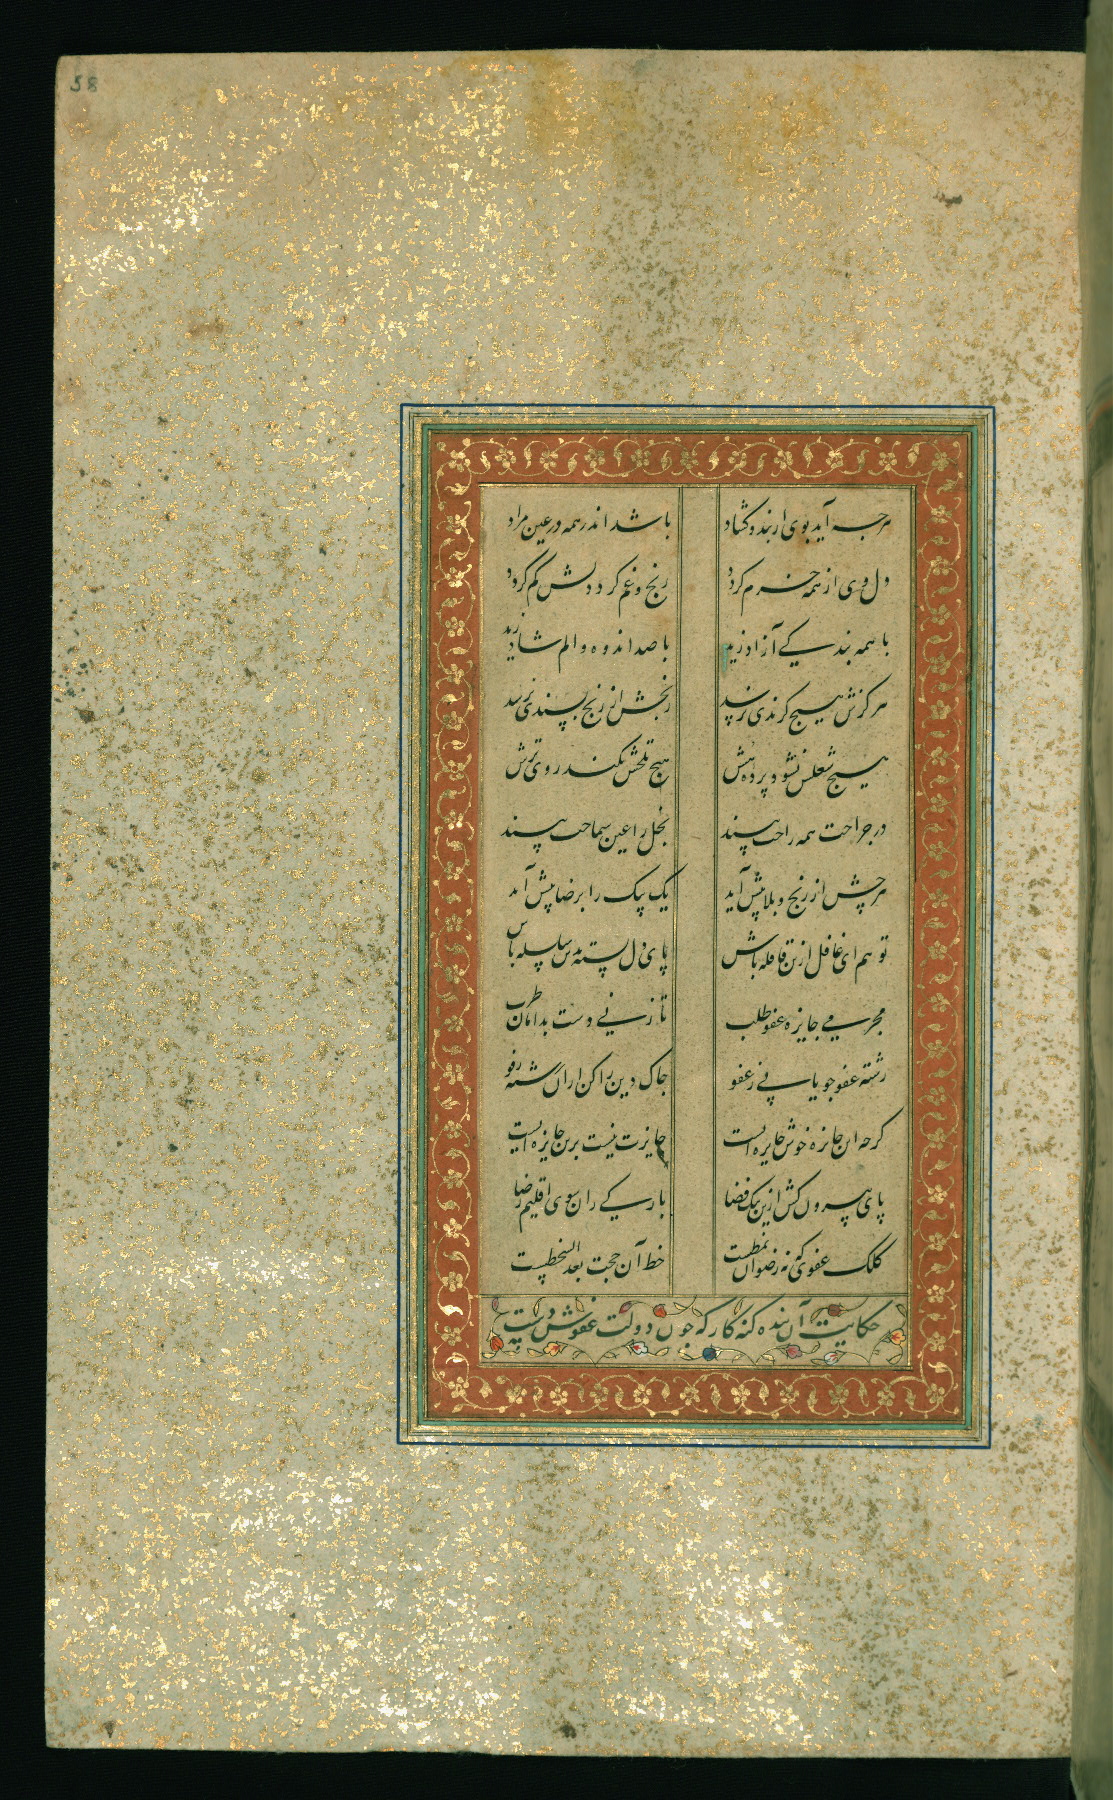 58
هرچه آید بوی از بنده گشاد باشد اندر همه در عین مراد
دل وی از همه خرم گردد رنج و غم گرد دلش کم گردد
با همه بندگی آزاد زید با صد اندوه و الم شاد زید
هرگزش هیچ گزندی نرسد رنجش از رنج پسندی نرسد
هیچ شغلش نشود پرده هش هیچ تلخش نکند روی ترش
در جراحت همه راحت بیند بخل را عین سماحت بیند
هرچش از رنج و بلا پیش آید یک بیک را برضا پیش آید
تو هم ای غافل ازین قافله باش پای دل بسته این سلسله باش
مجرمی جایزه عفو طلب تا زنی دست بدامان طرب
رشته عفو جو یابی ز عفو چاک دین را کن از آن رشته رفو
گرچه این جایزه خوش جایزه ایست جایزت نیست برین جایزه ایست
پای بیرون کش ازین تنگ فضا بارگی ران سوی اقلیم رضا
کلک عفوی که نه رضوان نمطست خط آن حجت بعد السخطست
حکایت آن بنده گنه کار که چون دولت عفوش دست